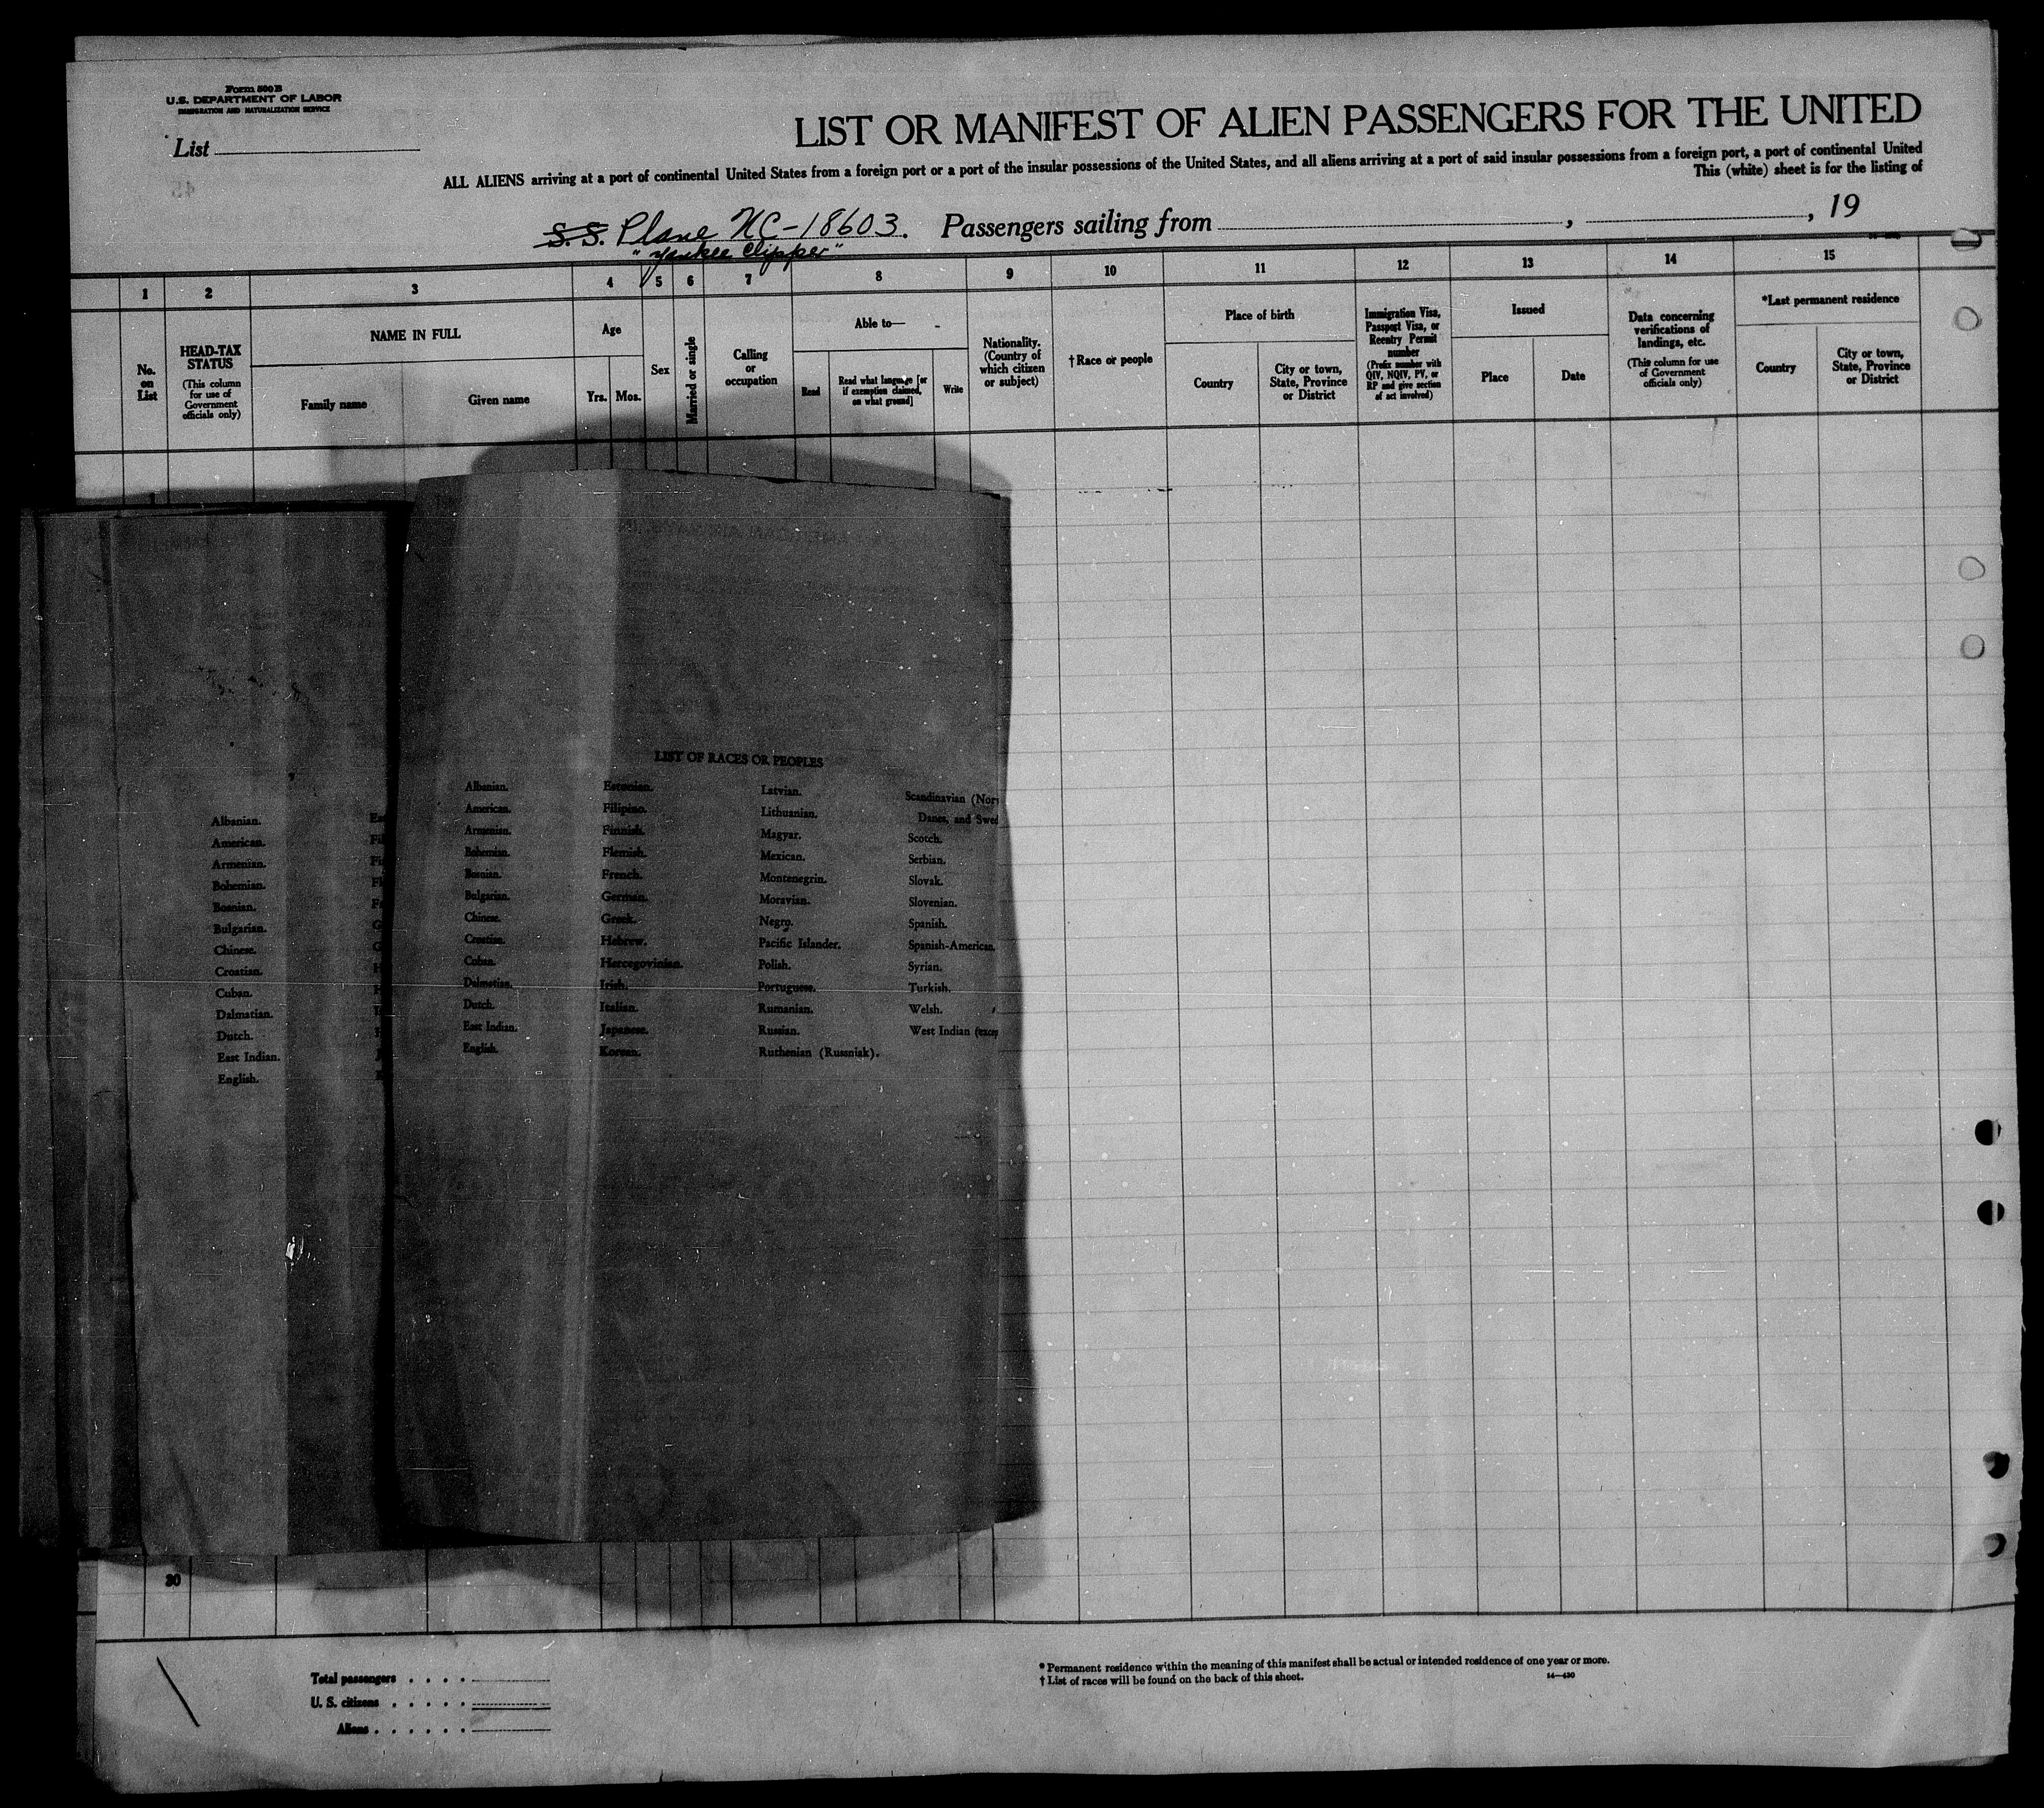 Form 500 B
U.S. DEPARTMENT OF LABOR
IMMIGRATION AND NATURALIZATION SERVICE
List
LIST OR MANIFEST OF ALIEN PASSENGERS FOR THE UNITED
ALL ALIENS arriving at a port of continental United States from a foreign port or a port of the insular possessions of the United States, and all aliens arriving at a port of said insular possessions from a foreign port, a port of continental United
This (white) sheet is for the listing of
S. S. Plane NC-18603. Passengers sailing from , , 19
"Yankee Clipper"
1 2 3 4 5 6 7 8 9 10 11 12 13 14 15
No. on List
HEAD-TAX STATUS
(This column for use of Government officials only)
NAME IN FULL
Family name
Given name
Age
Yrs. Mos.
Sex
Married or single
Calling or occupation
Able to—
Read
Read what language [or if exemption claimed, on what ground]
Write
Nationality. (Country of which citizen or subject)
†Race or people
Place of birth
Country
City or town, State, Province or District
Immigration Visa, Passport Visa, or Reentry Permit number
(Prefix number with QIV, NQIV, PV, or RP and give section of act involved)
Issued
Place
Date
Data concerning verifications of landings, etc.
(This column for use of Government officials only)
*Last permanent residence
Country
City or town, State, Province or District
Albanian.
American.
Armenian.
Bohemian.
Bosnian.
Bulgarian.
Chinese.
Croatian.
Cuban.
Dalmatian.
Dutch.
East Indian.
English.
LIST OF RACES OR PEOPLES
Albanian.
American.
Armenian.
Bohemian.
Bosnian.
Bulgarian.
Chinese.
Croatian.
Cuban.
Dalmatian.
Dutch.
East Indian.
English.
Estonian.
Filipino.
Finnish.
Flemish.
French.
German.
Greek.
Hebrew.
Hercegovinian.
Irish.
Italian.
Japanese.
Korean.
Latvian.
Lithuanian.
Magyar.
Mexican.
Montenegrin.
Moravian.
Negro.
Pacific Islander.
Polish.
Portuguese.
Rumanian.
Russian.
Ruthenian (Russniak).
Scandinavian (Nor
Danes, and Swed
Scotch.
Serbian.
Slovak.
Slovenian.
Spanish.
Spanish-American.
Syrian.
Turkish.
Welsh.
West Indian (exce
30
Total passengers . . . .
U. S. citizens . . . . .
Aliens . . . . . .
* Permanent residence within the meaning of this manifest shall be actual or intended residence of one year or more.
† List of races will be found on the back of this sheet.
14—430